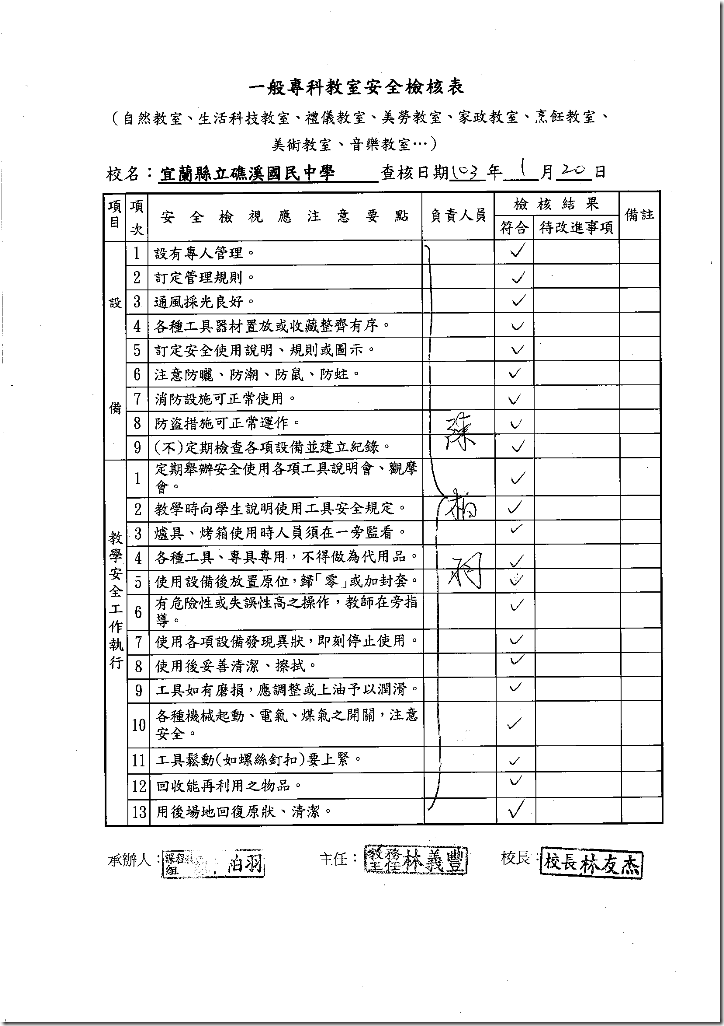 一般專科教室安全檢核表
（自然教室、生活科技教室、禮儀教室、美勞教室、家政教室、烹飪教室、
美術教室、音樂教室…）
校名：宜蘭縣立礁溪國民中學 查核日期103年1月20日
項目 項次 安全檢視應注意要點 負責人員 檢核結果 備註
符合 待改進事項
設備
1 設有專人管理。 ✓
2 訂定管理規則。 ✓
3 通風採光良好。 ✓
4 各種工具器材置放或收藏整齊有序。 ✓
5 訂定安全使用說明、規則或圖示。 ✓
6 注意防曬、防潮、防鼠、防蛀。 ✓
7 消防設施可正常使用。 ✓
8 防盜措施可正常運作。 ✓
9 (不)定期檢查各項設備並建立紀錄。 ✓
教學安全工作執行
1 定期舉辦安全使用各項工具說明會、觀摩
會。 ✓
2 教學時向學生說明使用工具安全規定。 ✓
3 爐具、烤箱使用時人員須在一旁監看。 ✓
4 各種工具、專具專用，不得做為代用品。 ✓
5 使用設備後放置原位，歸「零」或加封套。 ✓
6 有危險性或失誤性高之操作，教師在旁指
導。 ✓
7 使用各項設備發現異狀，即刻停止使用。 ✓
8 使用後妥善清潔、擦拭。 ✓
9 工具如有磨損，應調整或上油予以潤滑。 ✓
10 各種機械起動、電氣、煤氣之開關，注意
安全。 ✓
11 工具鬆動(如螺絲釘扣)要上緊。 ✓
12 回收能再利用之物品。 ✓
13 用後場地回復原狀、清潔。 ✓
承辦人： 主任：教務主任林義豐 校長：校長林友杰